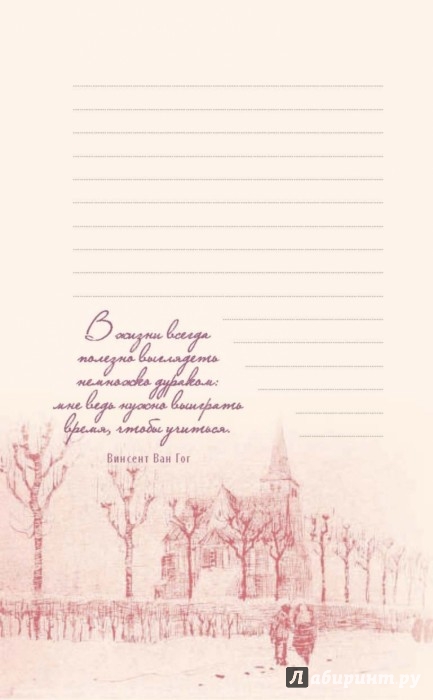 В жизни всегда
полезно выглядеть
немножко дураком:
мне ведь нужно выиграть
время, чтобы учиться.
Винсент Ван Гог
Лабиринт.ру